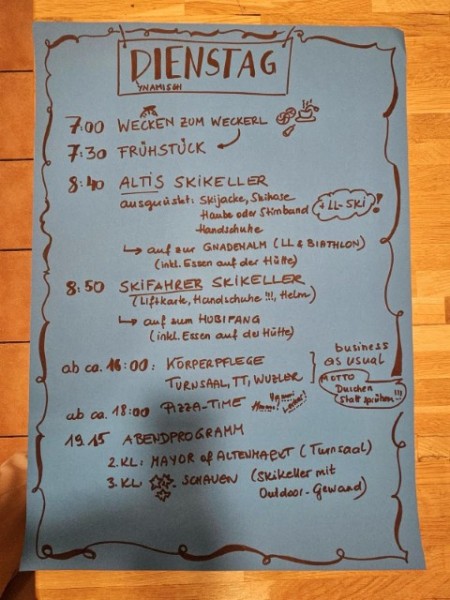 DIENSTAG
YNAMISCH
7:00 WECKEN ZUM WECKERL
7:30 FRÜHSTÜCK
8:40 ALTIS SKIKELLER
ausgerüstet: Skijacke, Skihose
Haube oder Stirnband
Handschuhe
+ LL-SKI !
→ auf zur GNADENALM (LL & BIATHLON)
(inkl. Essen auf der Hütte)
8:50 SKIFAHRER SKIKELLER
(Liftkarte, Handschuhe !!!, Helm)
→ auf zum HUBIFANG
(inkl. Essen auf der Hütte)
ab ca. 16:00: KÖRPERPFLEGE
TURNSAAL, TT, WUZLER
business
as usual
MOTTO
Duschen
statt sprühen!!!
ab ca. 18:00 PIZZA-TIME
19.15 ABENDPROGRAMM
2. KL: MAYOR of ALTENMARKT (Turnsaal)
3. KL: SCHAUEN (Skikeller mit
Outdoor-Gewand)